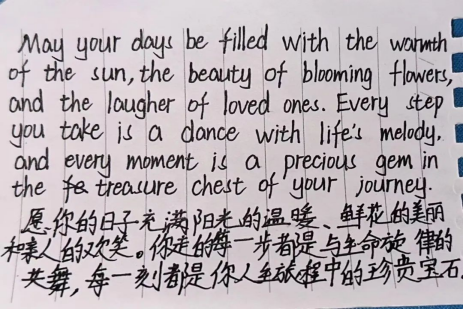 May your days be filled with the warmth
of the sun, the beauty of blooming flowers,
and the laugher of loved ones. Every step
you take is a dance with life's melody.
and every moment is a precious gem in
the treasure chest of your journey.
愿你的日子充满阳光的温暖、鲜花的美丽
和亲人的欢笑。你走的每一步都是与生命旋律的
共舞，每一刻都是你人生旅程中的珍贵宝石.